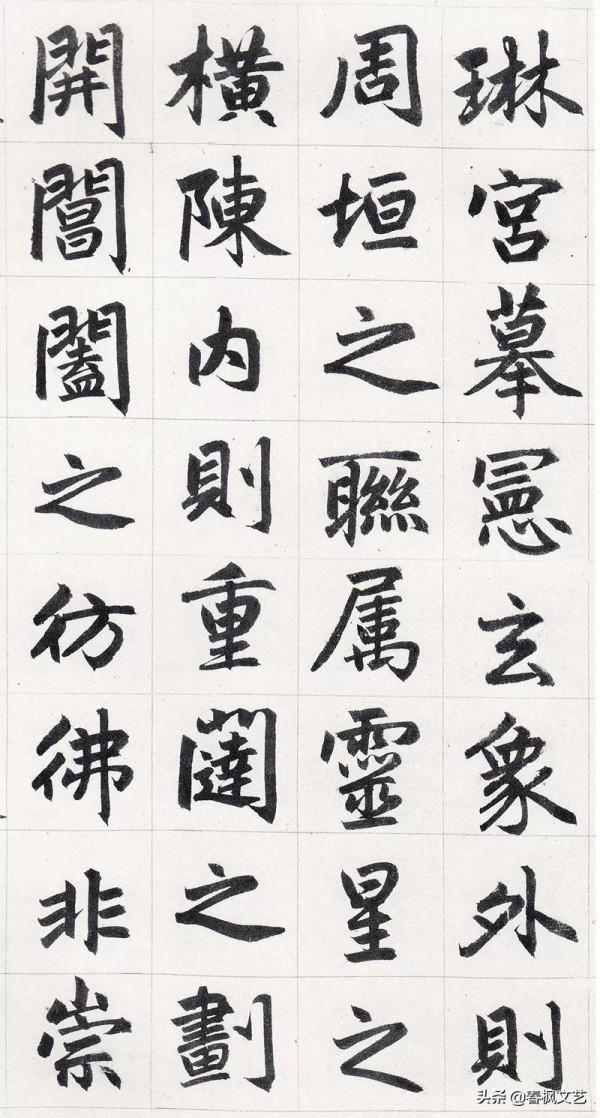 琳宮摹憲玄象外則
周垣之聯属靈星之
橫陳内則重闥之劃
開閶闔之彷彿非崇
头条 @春枫文艺